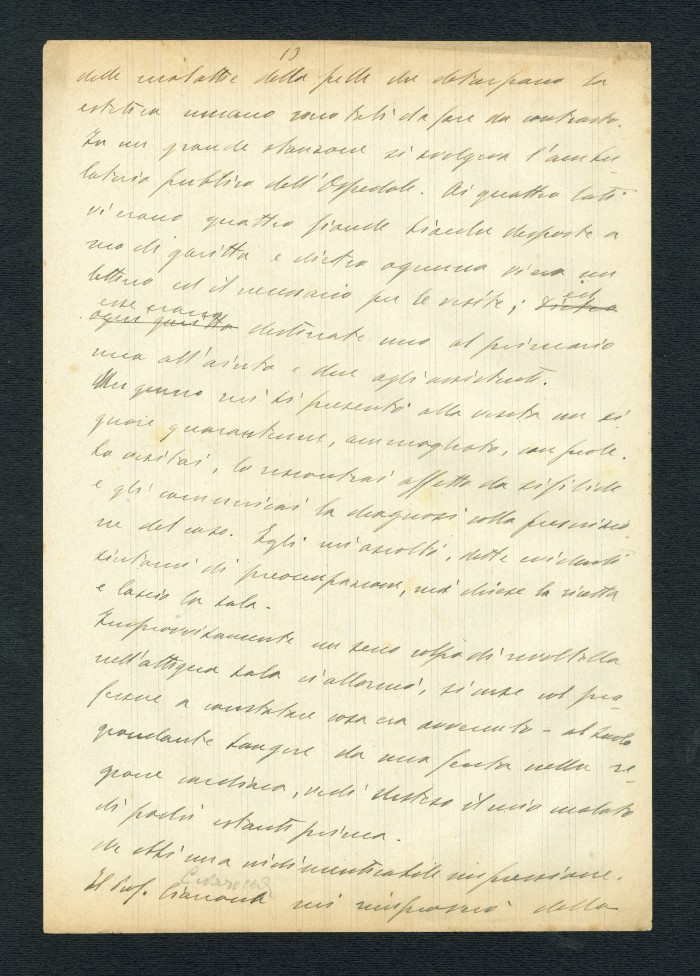 13
delle malattie della pelle che deturpano la
estetica umana sono tali da fare da contrasto.
In un grande stanzone si svolgeva l'ambu
latorio pubblico dell'Ospedale. Ai quattro lati
vi erano quattro grande tende disposte a
mo di garitta e dietro ognuna vi era un
lettino ed il necessario per le visite; dietro ed
ogni garitta esse erano destinate una al primario
una all'aiuto e due agli assistenti.
Un giorno mi si presentò alla visita un si
gnore quarantenne, ammogliato, con prole.
Lo visitai, lo riscontrai affetto da sifilide
e gli comunicai la diagnosi colla prescrizio
ne del caso. Egli mi ascoltò, dette evidenti
sintomi di preoccupazione, mi chiese la ricetta
e lasciò la sala.
Improvvisamente un secco colpo di revoltella
nell'attigua sala ci allarmò, si corse col pro
fessore a constatare cosa era avvenuto - al suolo
grondante sangue da una ferita nella re-
gione cardiaca, vidi disteso il mio malato
di pochi istanti prima.
Ne ebbi una indimenticabile impressione.
Il Prof. mi rimproverò della